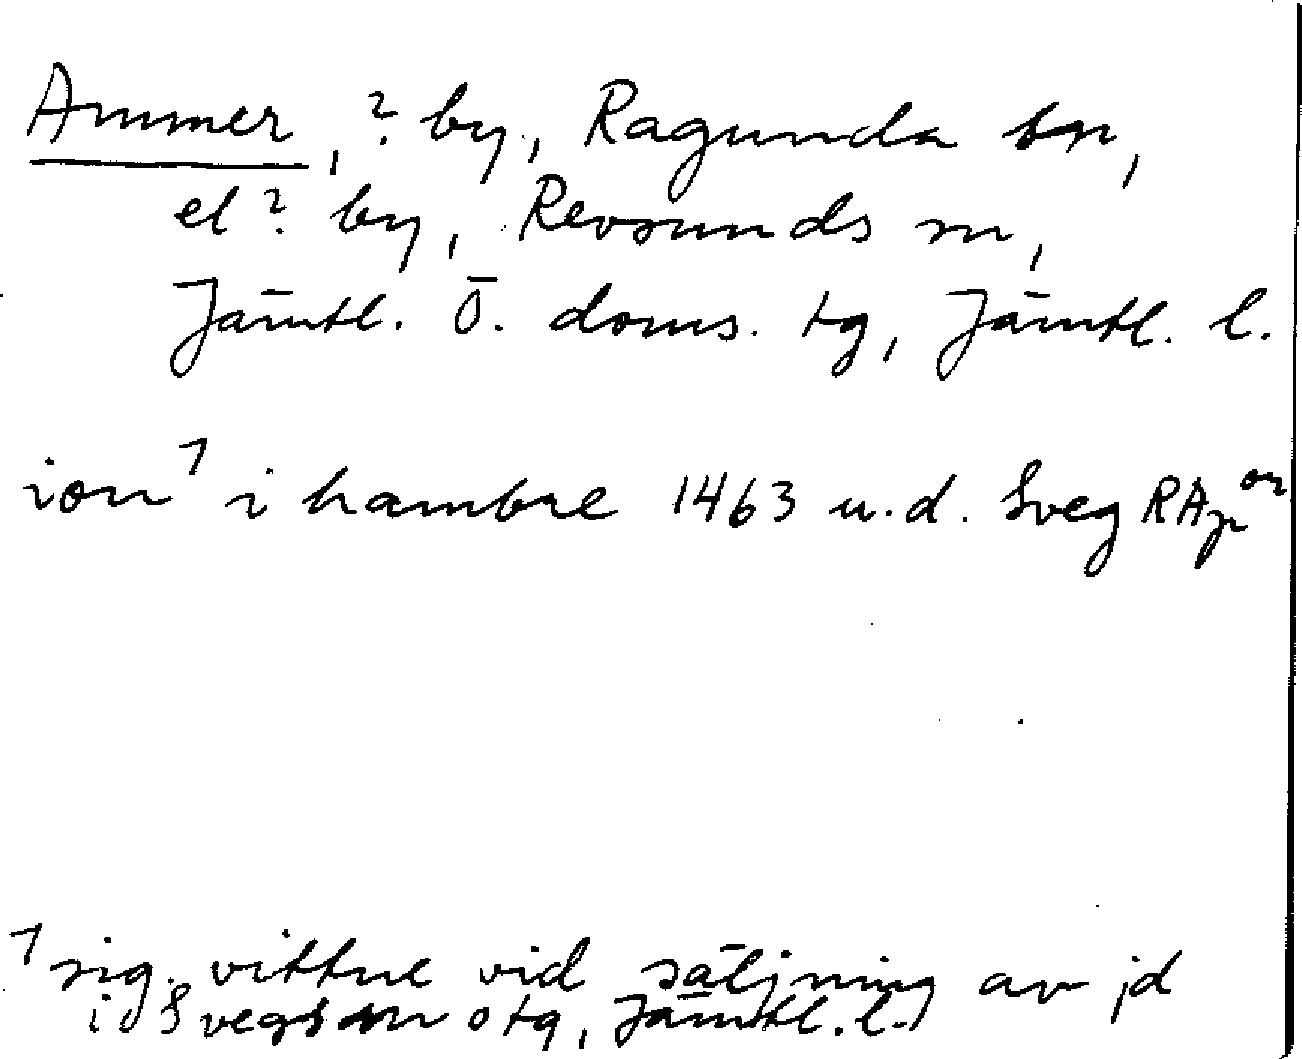 Ammer, ? by, Ragunda sn,
el ? by, Revsunds sn,
Jämtl. Ö. doms. tg, Jämtl. l.
ion ⁊ i hambre 1463 u.d. Sveg RAp or
⁊ sig. vittne vid säljning av jd
i Svegs sn o tg, Jämtl. l.